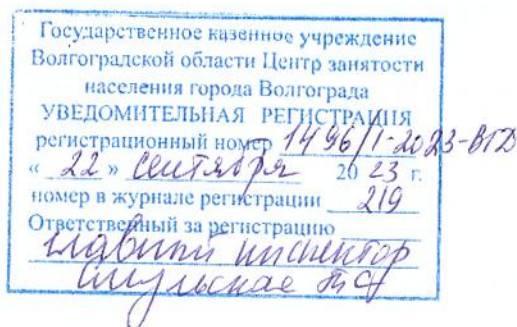 Государственное казенное учреждение
Волгоградской области Центр занятости
населения города Волгограда
УВЕДОМИТЕЛЬНАЯ РЕГИСТРАЦИЯ
регистрационный номер 1496/1-2023-ВГД
« 22 » сентября 2023 г.
номер в журнале регистрации 219
Ответственный за регистрацию
главный инспектор